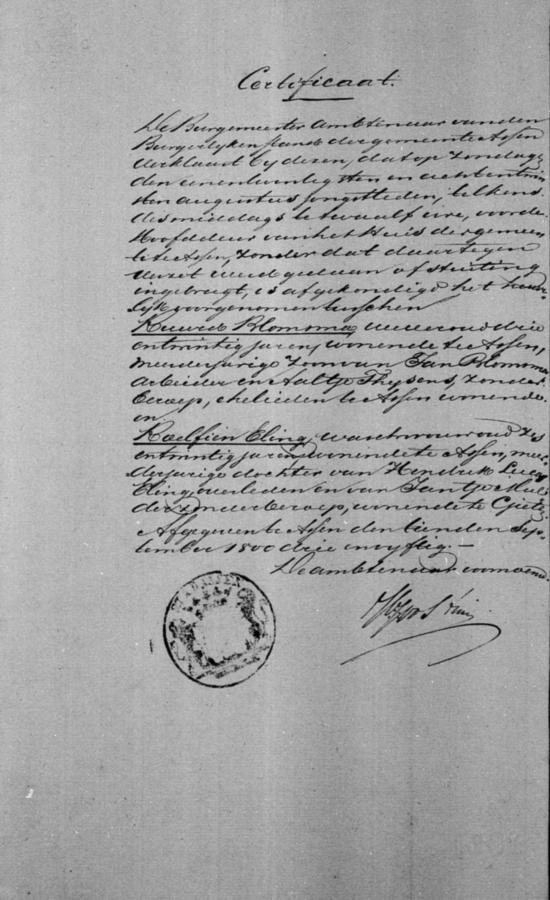 Certificaat.
De Burgemeester Ambtenaar van den
Burgerlijken stand der gemeente Assen
verklaart bij dezen, dat op Zondag
den eenentwintigsten en achtentwin
sten augustus jongstleden, telkens
des middags te twaalf ure, voor de
Hoofddeur van het Huis der gemeen
te Assen, zonder dat daartegen
verzet werd gedaan of stuiting
ingebragt, is afgekondigd het huwe
lijk voorgenomen tusschen
oud drie
entwintig jaren, wonende te Assen,
meerderjarige Zoon van Jan
Arbeider en Aaltje Thysens, zonder
beroep, echelieden te Assen wonende
en
Roelfien Eling, oud zes
entwintig jaren wonende te Assen, meer
derjarige dochter van Hendrik Lucas
Eling overleden en van Jantje
der zonder beroep, wonende te
Afgegeven te Assen den tienden Sep
tember 1800 drie en vyftig. —
De ambtenaar voornoemd.
ASSEN